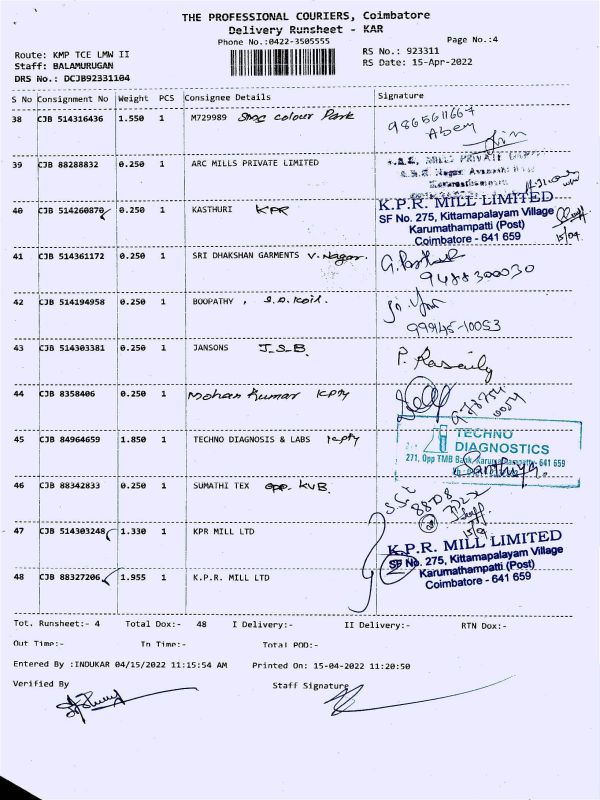 THE PROFESSIONAL COURIERS, Coimbatore
Delivery Runsheet - KAR
Phone No.:0422-3505555
Page No.:4
Route: KMP TCE LMW II
RS No.: 923311
Staff: BALAMURUGAN
RS Date: 15-Apr-2022
DRS No.: DCJB92331104
S No Consignment No Weight PCS Consignee Details Signature
38 CJB 514316436 1.550 1 M729989 Shoe colour Park
9865611667
Abey
39 CJB 88288832 0.250 1 ARC MILLS PRIVATE LIMITED
40 CJB 514260870 0.250 1 KASTHURI KPR
K.P.R. MILL LIMITED
SF No. 275, Kittamapalayam Village
Karumathampatti (Post)
Coimbatore - 641 659
15/04
41 CJB 514361172 0.250 1 SRI DHAKSHAN GARMENTS V. Nagar.
9488300030
42 CJB 514194958 0.250 1 BOOPATHY , S.A. Koil.
99945-10053
43 CJB 514303381 0.250 1 JANSONS J_S_B.
44 CJB 8358406 0.250 1 Mohan Kumar KPty
45 CJB 84964659 1.850 1 TECHNO DIAGNOSIS & LABS KPty
TECHNO
DIAGNOSTICS
271, Opp TMB Bank, Karumathampatti - 641 659
46 CJB 88342833 0.250 1 SUMATHI TEX opp. KVB.
47 CJB 514303248 1.330 1 KPR MILL LTD
K.P.R. MILL LIMITED
SF No. 275, Kittamapalayam Village
Karumathampatti (Post)
Coimbatore - 641 659
48 CJB 88327206 1.955 1 K.P.R. MILL LTD
Tot. Runsheet:- 4 Total Dox:- 48 I Delivery:- II Delivery:- RTN Dox:-
Out Time:- In Time:- Total POD:-
Entered By :INDUKAR 04/15/2022 11:15:54 AM Printed On: 15-04-2022 11:20:50
Verified By Staff Signature